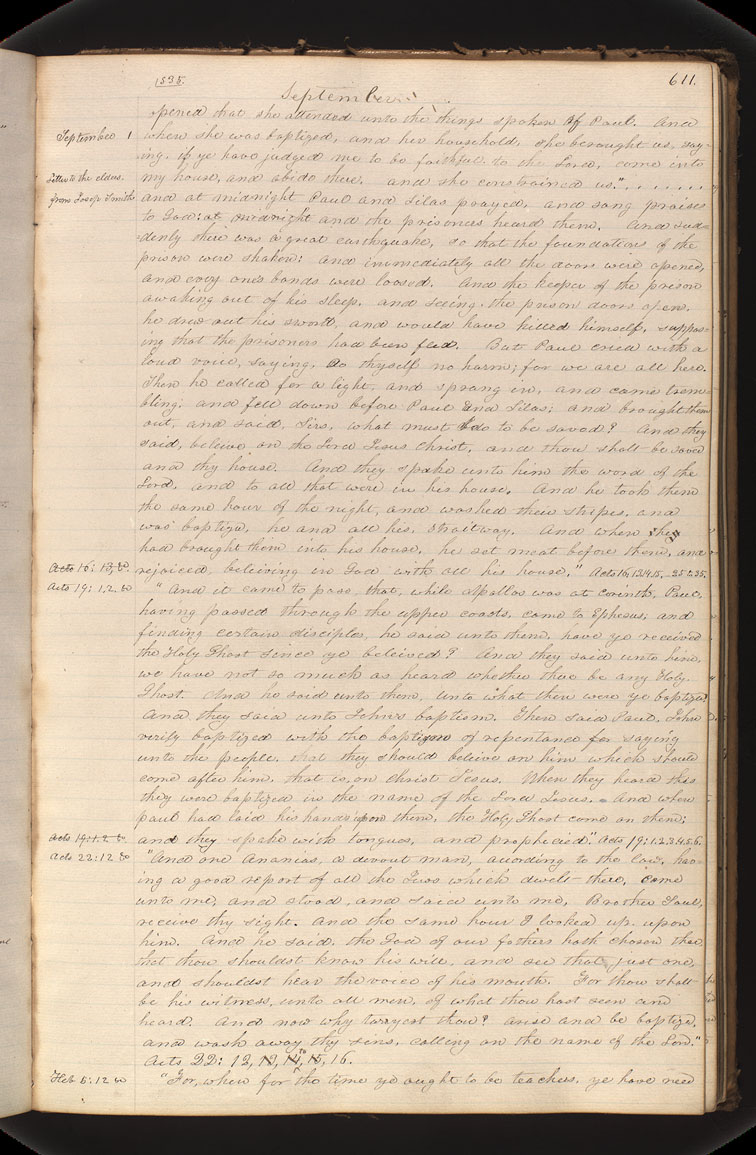 1835.
611.
September
opened that she attended unto the things spoken of Paul. And
September 1
when she was baptized, and her household, she besought us, say-
ing, if ye have judged me to be faithful to the Lord, come into
Letter to the elders
from Joseph Smith
my house, and abide there. and she constrained us." . . . . . . .
and at midnight Paul and Silas prayed, and sang praises
to God: at midnight and the prisoners heard them. And sud-
denly there was a great earthquake, so that the foundations of the
prison were shaken: and immediately all the doors were opened,
and every one's bands were loosed. And the keeper of the prison
awaking out of his sleep, and seeing the prison doors open,
he drew out his sword, and would have killed himself, suppos-
ing that the prisoners had been fled. But Paul cried with a
loud voice, saying, do thyself no harm; for we are all here.
Then he called for a light, and sprang in, and came trem-
bling, and fell down before Paul and Silas; and brought them
out, and said, Sirs, what must I do to be saved? And they
said, believe on the Lord Jesus Christ, and thou shalt be saved
and thy house. And they spake unto him the word of the
Lord, and to all that were in his house. And he took them
the same hour of the night, and washed their stripes, and
was baptized, he and all his, straitway. And when he
had brought them into his house, he set meat before them, and
Acts 16: 13, &c
rejoiced, beleiving in God with all his house." Acts 16, 13.14.15, 25 to 35.
Acts 19: 1.2. &c
"And it came to pass, that, while Apollos was at Corinth, Paul,
having passed through the upper coasts, came to Ephesus, and
finding certain disciples, he said unto them, have ye received
the Holy Ghost since ye beleived? And they said unto him,
we have not so much as heard whether there be any Holy
Ghost. And he said unto them, unto what then were ye baptized?
And they said unto John's baptism. Then said Paul, John
verily baptized with the baptism of repentance for saying
unto the people, that they should beleive on him which should
come after him, that is, on Christ Jesus. When they heard this
they were baptized in the name of the Lord Jesus. And when
paul had laid his hands upon them, the Holy Ghost came on them;
Acts 19:1.2 &c
and they spake with tongues, and prophecied." Acts 19:1.2.3.4.5.6.
Acts 22:12 &c
"And one Ananias, a devout man, according to the law, hav-
ing a good report of all the Jews which dwelt there, came
unto me, and stood, and said unto me, Brother Saul,
receive thy sight. And the same hour I looked up upon
him. And he said, the God of our fathers hath chosen thee
that thou shouldst know his will, and see that just one,
and shouldst hear the voice of his mouth. For thou shalt
be his witness, unto all men, of what thou hast seen and
heard. And now why tarryest thou? arise and be baptized,
and wash away thy sins, calling on the name of the Lord."
Acts 22: 12, 13, 14, to 15, 16.
Heb 5:12 &c
"For, when for the time ye ought to be teachers, ye have need